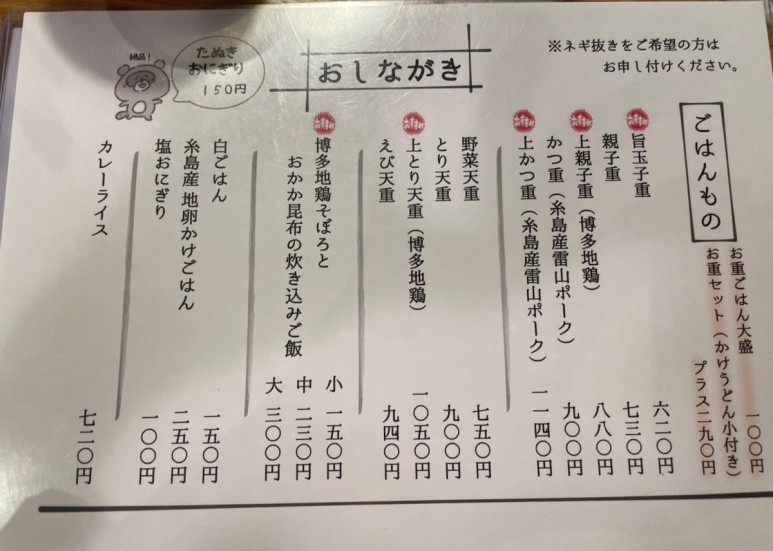 おしながき
※ネギ抜きをご希望の方は
お申し付けください。
絶品!
たぬき
おにぎり
150円
ごはんもの
お重ごはん大盛 一〇〇円
お重セット(かけうどん小付き)
プラス二九〇円
おすすめ
旨玉子重 六二〇円
親子重 七三〇円
おすすめ
上親子重(博多地鶏) 八八〇円
かつ重(糸島産雷山ポーク) 九〇〇円
おすすめ
上かつ重(糸島産雷山ポーク) 一一四〇円
野菜天重 七五〇円
とり天重 九〇〇円
おすすめ
上とり天重(博多地鶏) 一〇五〇円
えび天重 九四〇円
おすすめ
博多地鶏そぼろと
おかか昆布の炊き込みご飯
小 一五〇円
中 二三〇円
大 三〇〇円
白ごはん 一五〇円
糸島産 地卵かけごはん 二五〇円
塩おにぎり 一〇〇円
カレーライス 七二〇円